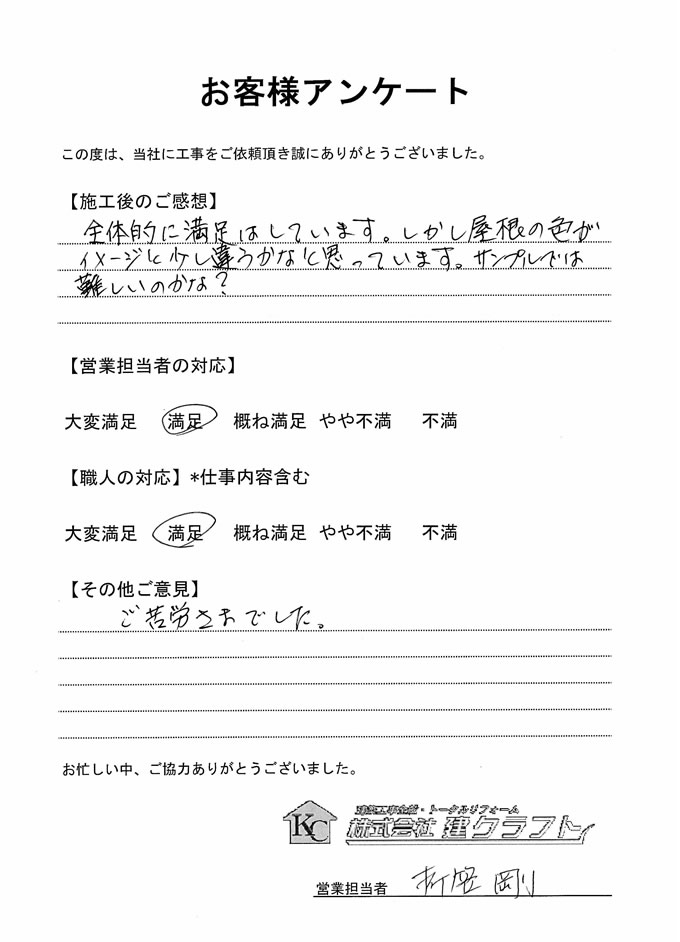 お客様アンケート
この度は、当社に工事をご依頼頂き誠にありがとうございました。
【施工後のご感想】
全体的に満足はしています。しかし屋根の色が
イメージと少し違うかなと思っています。サンプルでは
難しいのかな？
【営業担当者の対応】
大変満足 満足 概ね満足 やや不満 不満
【職人の対応】*仕事内容含む
大変満足 満足 概ね満足 やや不満 不満
【その他ご意見】
ご苦労さまでした。
お忙しい中、ご協力ありがとうございました。
KC
建築工事全般・トータルリフォーム
株式会社 建クラフト
営業担当者 剛